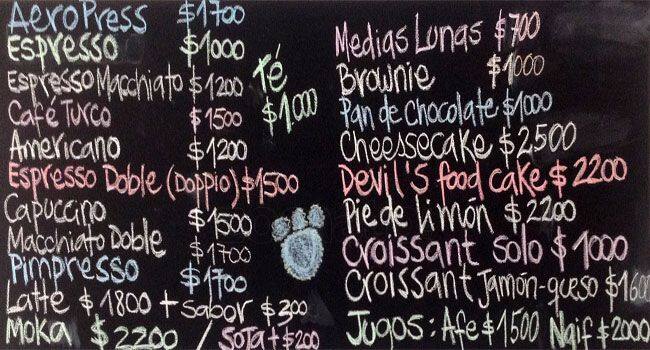 AeroPress $1700
Espresso $1000
Espresso Macchiato $1200
Café Turco $1500
Americano $1200
Espresso Doble (Doppio) $1500
Capuccino $1500
Macchiato Doble $1700
Pimpresso $1700
Latte $1800 + Sabor $300
Moka $2200 / Soja + $200
Té
$1.000
Medias Lunas $700
Brownie $1000
Pan de Chocolate $1000
Cheessecake $2500
Devil's food cake $2200
Pie de limón $2200
Croissant solo $1000
Croissant Jamón-queso $1600
Jugos: Afe $1500 Naif $2000